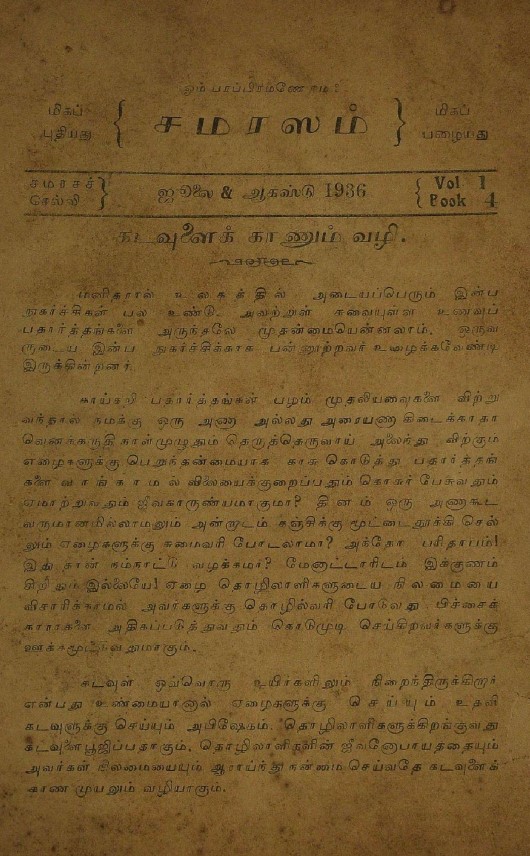 ஓம் பரப்பிரம்மணே நம:
மிகப் புதியது { சமரஸம் } மிகப் பழையது
சமரசச் செல்வி } ஜூலை & ஆகஸ்டு 1936 { Vol 1 Book 4
கடவுளைக் காணும் வழி.
மனிதரால் உலகத்தில் அடையப்பெரும் இன்ப
நுகர்ச்சிகள் பல உண்டு. அவற்றுள் சுவையுள்ள உணவுப்
பதார்த்தங்களை அருந்தலே முதன்மையென்னலாம். ஒருவ
ருடைய இன்ப நுகர்ச்சிக்காக பன்னூற்றவர் உழைக்கவேண்டி
இருக்கின்றனர்.
காய்கறி பதார்த்தங்கள் பழம் முதலியவைகளை விற்று
வந்தால் நமக்கு ஒரு அணா அல்லது அரையணா கிடைக்காதா
வெனக்கருதி நாள்முழுதும் தெருத்தெருவாய் அலைந்து விற்கும்
ஏழைகளுக்கு பெறுந்தன்மையாக காசு கொடுத்து பதார்த்தங்
களை வாங்காமல் விலையைக்குறைப்பதும் கொசுர் பேசுவதும்
ஏமாற்றுவதும் ஜீவகாருண்யமாகுமா? தினம் ஒரு அணாகூட
வருமானமில்லாமலும் அன்றாடம் கஞ்சிக்கு மூட்டைதூக்கி செல்
லும் ஏழைகளுக்கு சுமைவரி போடலாமா? அந்தோ பரிதாபம்!
இது தான் நம்நாட்டு வழக்கமா? மேனாட்டாரிடம் இக்குணம்
சிறிதும் இல்லையே! ஏழை தொழிலாளிகளுடைய நிலமையை
விசாரிக்காமல் அவர்களுக்கு தொழில்வரி போடுவது பிச்சைக்
காரர்களை அதிகப்படுத்துவதும் கொடுமுடி செய்கிறவர்களுக்கு
ஊக்கமூட்டுவதுமாகும்.
கடவுள் ஒவ்வொரு உயிர்களிலும் நிறைந்திருக்கிறார்
என்பது உண்மையானால் ஏழைகளுக்கு செய்யும் உதவி
கடவுளுக்கு செய்யும் அபிஷேகம். தொழிலாளிகளுக்கிறங்குவது
கடவுளைபூஜிப்பதாகும். தொழிலாளிகளின் ஜீவனோபாயத்தையும்
அவர்கள் நிலமையையும் ஆராய்ந்து நன்மை செய்வதே கடவுளைக்
காண முயலும் வழியாகும்.